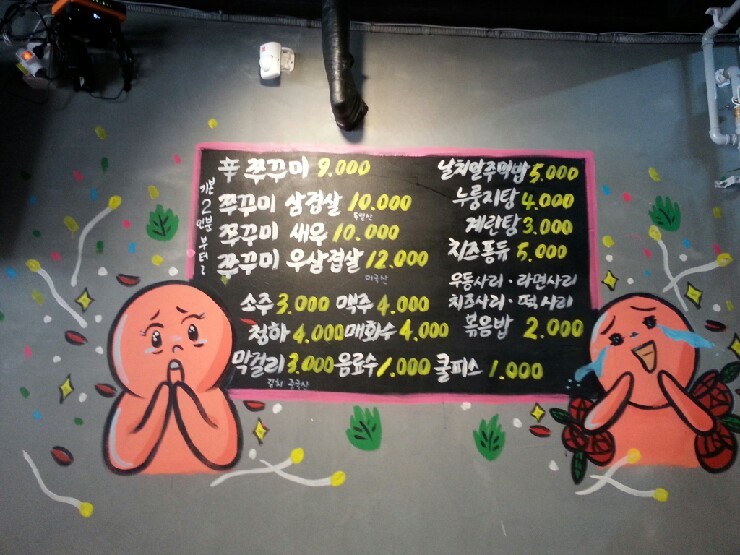 기본 2인분 부터~
辛 쭈꾸미 9.000
쭈꾸미 삼겹살 10.000
쭈꾸미 새우 10.000
쭈꾸미 우삼겹살 12.000
미국산
소주 3.000 맥주 4.000
청하 4.000 매화수 4.000
막걸리 3.000 음료수 1.000 쿨피스 1.000
김치 중국산
날치알주먹밥 5.000
누룽지탕 4.000
계란탕 3.000
치즈퐁듀 5.000
우동사리·라면사리
치즈사리·떡사리
볶음밥 2.000